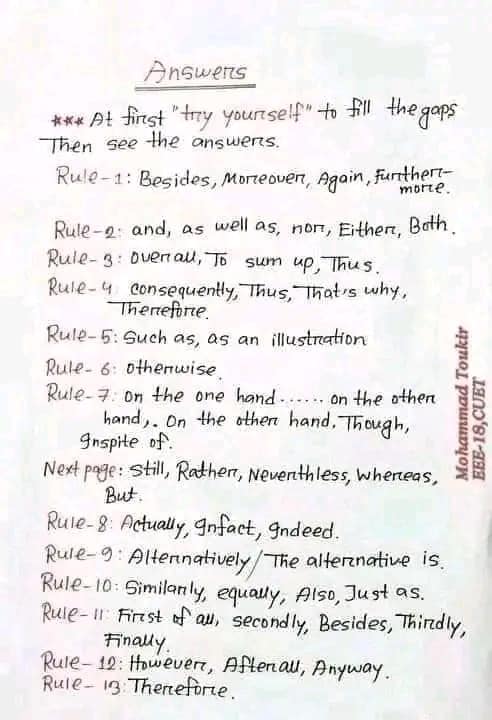 Answers
*** At first "try yourself" to fill the gaps
Then see the answers.
Rule-1: Besides, Moreover, Again, Further-
more.
Rule-2: and, as well as, nor, Either, Both.
Rule-3: overall, To sum up, Thus.
Rule-4: consequently, Thus, That's why,
Therefore.
Rule-5: Such as, as an illustration
Rule-6: otherwise.
Rule-7: on the one hand ...... on the other
hand,. On the other hand, Though,
Inspite of.
Next page: Still, Rather, Neverthless, whereas,
But.
Rule-8: Actually, Infact, Indeed.
Rule-9: Alternatively/The alternative is.
Rule-10: Similarly, equally, Also, Just as.
Rule-11: First of all, secondly, Besides, Thirdly,
Finally.
Rule-12: However, After all, Anyway.
Rule-13: Therefore.
Mohammad Toukir
EEE-18,CUET